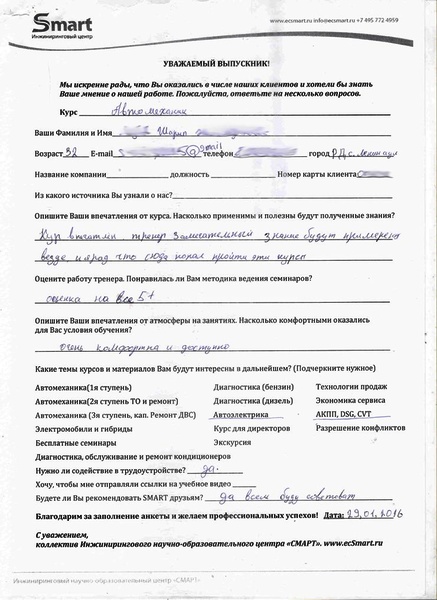 Smart
Инжиниринговый центр
www.ecsmart.ru info@ecsmart.ru +7 495 772 4959
УВАЖАЕМЫЙ ВЫПУСКНИК!
Мы искренне рады, что Вы оказались в числе наших клиентов и хотели бы знать
Ваше мнение о нашей работе. Пожалуйста, ответьте на несколько вопросов.
Курс Автомеханик
Ваши Фамилия и Имя Шарип
Возраст 32 E-mail 5@gmail телефон город РД с.
Название компании должность Номер карты клиента
Из какого источника Вы узнали о нас?
Опишите Ваши впечатления от курса. Насколько применимы и полезны будут полученные знания?
тренер замечательный знание будут
везде и я рад что сюда попал пройти эти курсы
Оцените работу тренера. Понравилась ли Вам методика ведения семинаров?
оценка на все 5+
Опишите Ваши впечатления от атмосферы на занятиях. Насколько комфортными оказались
для Вас условия обучения?
очень комфортна и доступно
Какие темы курсов и материалов Вам будут интересны в дальнейшем? (Подчеркните нужное)
Автомеханика(1я ступень) Диагностика (бензин) Технологии продаж
Автомеханика(2я ступень ТО и ремонт) Диагностика (дизель) Экономика сервиса
Автомеханика (3я ступень, кап. Ремонт ДВС) Автоэлектрика АКПП, DSG, CVT
Электромобили и гибриды Курс для директоров Разрешение конфликтов
Бесплатные семинары Экскурсия
Диагностика, обслуживание и ремонт кондиционеров
Нужно ли содействие в трудоустройстве? да.
Хотите, чтобы мы отправляли ссылки на учебное видео
Будете ли Вы рекомендовать SMART друзьям? да всем буду советоват
Благодарим за заполнение анкеты и желаем профессиональных успехов! Дата: 29.01.2016
С уважением,
коллектив Инжинирингового научно-образовательного центра «СМАРТ». www.ecSmart.ru
Инжиниринговый научно-образовательный центр «СМАРТ»